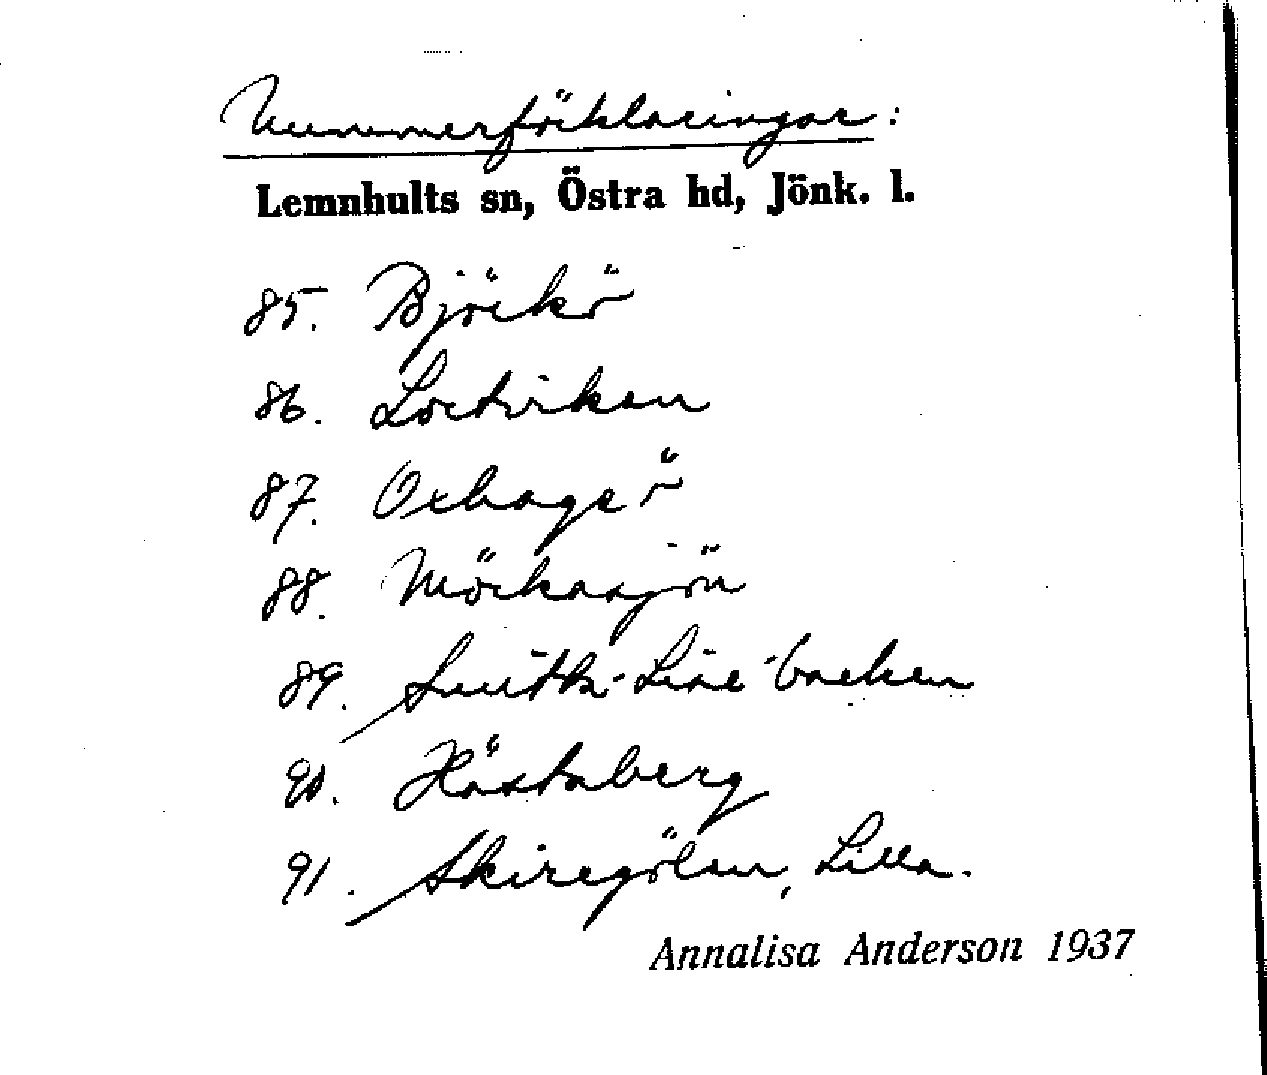 Nummerförklaringar:
Lemnhults sn, Östra hd, Jönk. l.
85. Björkö
86. Lortviken
87. Oxhagsö
88. Mörkasjön
89. Smith-Lise-backen
90. Hästaberg
91. Skiregölen, Lilla.
Annalisa Anderson 1937